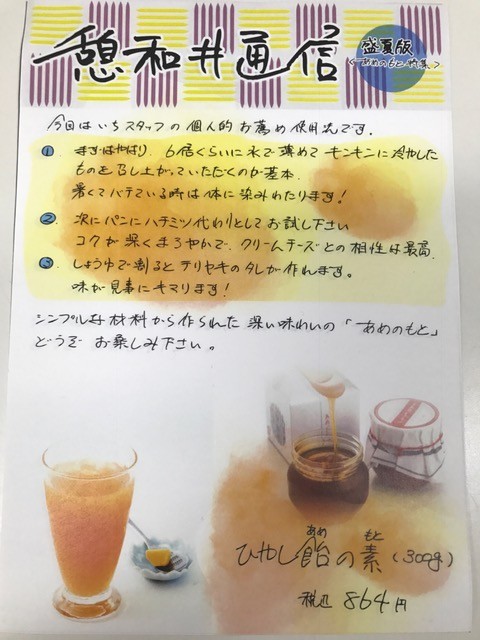 憩和井通信
盛夏版
<あめのもと特集>
今回はいちスタッフの個人的お薦め使用法です.
① まずはやはり、6倍くらいに水で薄めてキンキンに冷やした
ものを召し上がっていただくのが基本.
暑くてバテている時は体に染みわたります!
② 次にパンにハチミツ代わりとしてお試し下さい
コクが深くまろやかで、クリームチーズとの相性は最高.
③ しょうゆで割るとテリヤキのタレが作れます。
味が見事にキマリます!
シンプルな材料から作られた深い味わいの「あめのもと」
どうぞお楽しみ下さい。
あめ もと
ひやし飴の素(300g)
税込 864円